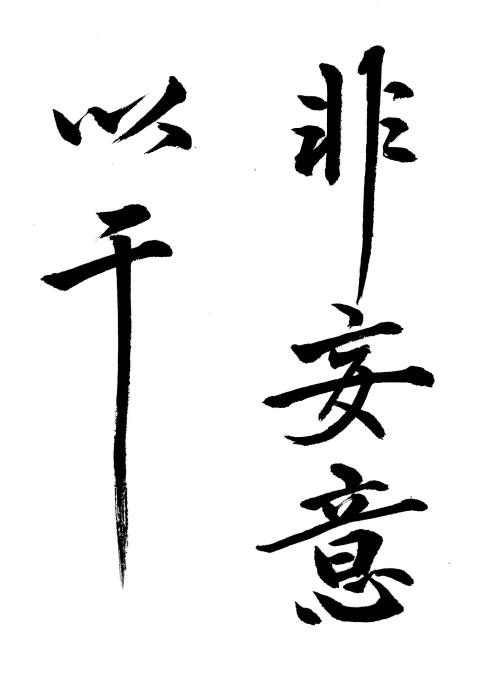 非妄意
以干